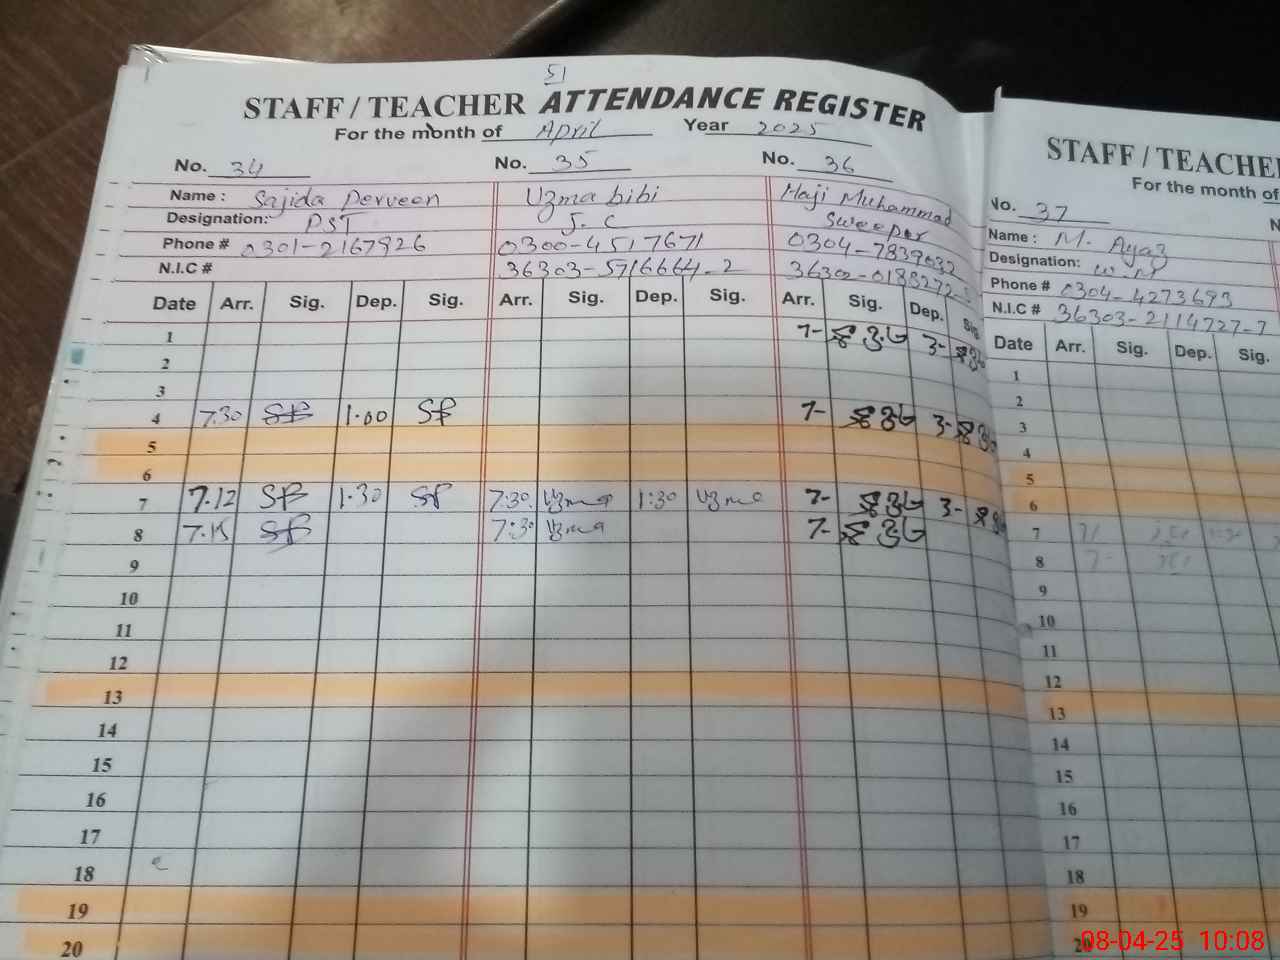 51
STAFF / TEACHER ATTENDANCE REGISTER
For the month of April Year 2025
No. 34 No. 35 No. 36
Name : Sajida Perveen Uzma bibi Haji Muhammad
Designation: PST J.C Sweeper
Phone # 0301-2167926 0300-4517671 0304-7839032
N.I.C # 36303-5716664-2 36302-0188272-
Date Arr. Sig. Dep. Sig. Arr. Sig. Dep. Sig. Arr. Sig. Dep. Sig
1 7- 3-
2
3
4 7.30 SB 1.00 SB 7- 3-
5
6
7 7.12 SB 1.30 SB 7:30 Uzma 1:30 Uzma 7- 3-
8 7.15 SB 7:30 Uzma 7-
9
10
11
12
13
14
15
16
17
18
19
20
STAFF / TEACHE
For the month of
No. 37
Name : M. Ayaz
Designation:
Phone # 0304-4273693
N.I.C # 36303-2114727-7
Date Arr. Sig. Dep. Sig.
1
2
3
4
5
6
7
8 7-
9
10
11
12
13
14
15
16
17
18
19
20
08-04-25 10:08